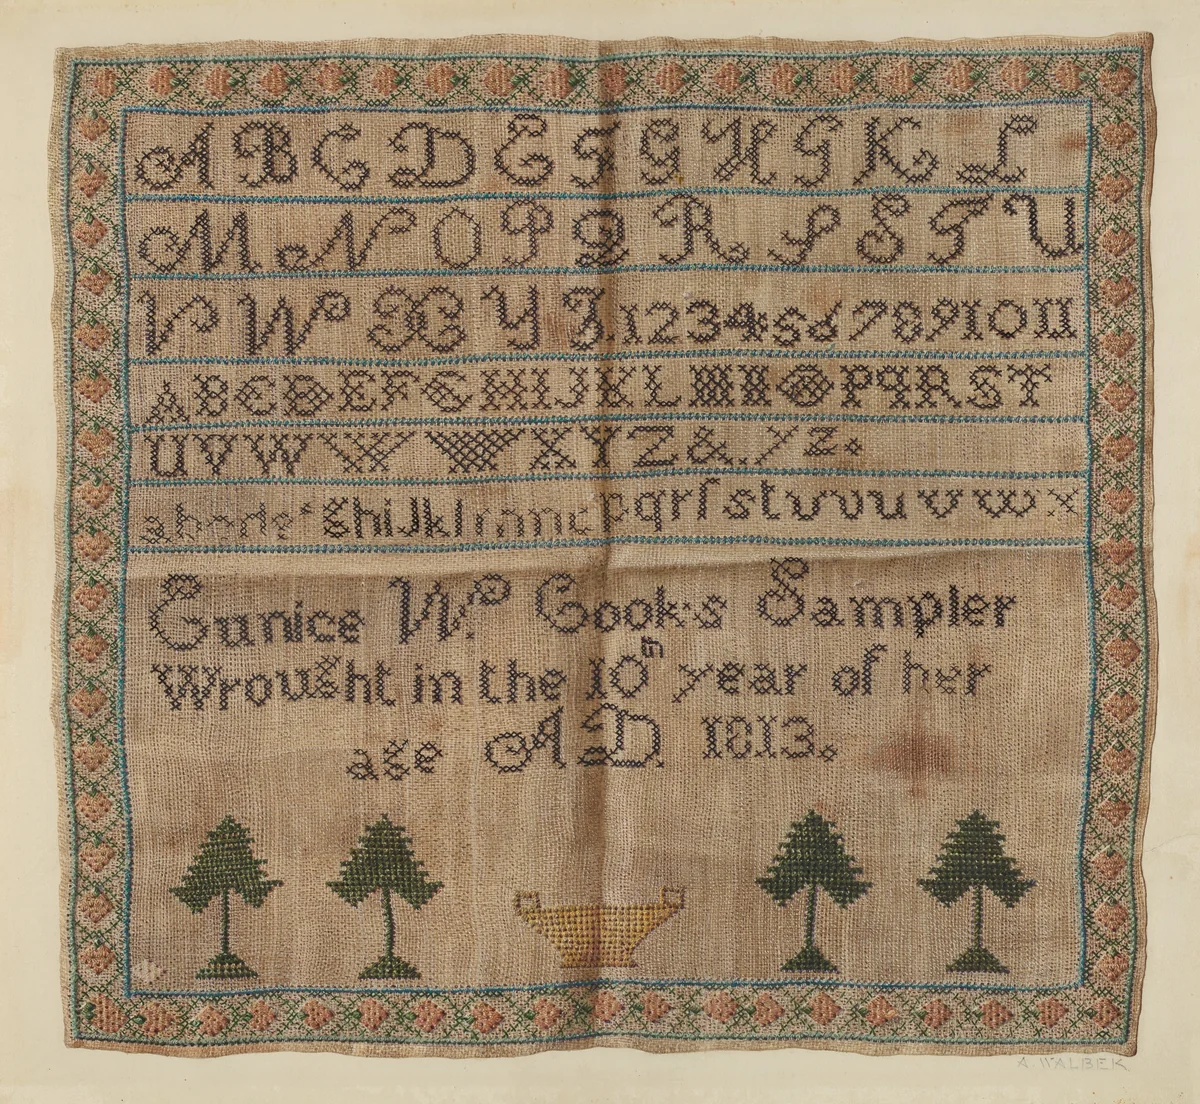 A B C D E F G H I K L
M N O P Q R S T U
V W X Y Z 1 2 3 4 5 6 7 8 9 10 11
A B C D E F G H I J K L M N O P Q R S T
U V W X Y Z & . y z .
h i j k l m n o p q r ſ s t v v u v w x
Eunice W. Cook's Sampler
Wrought in the 10th year of her
age A D 1813.
A. WALBEK